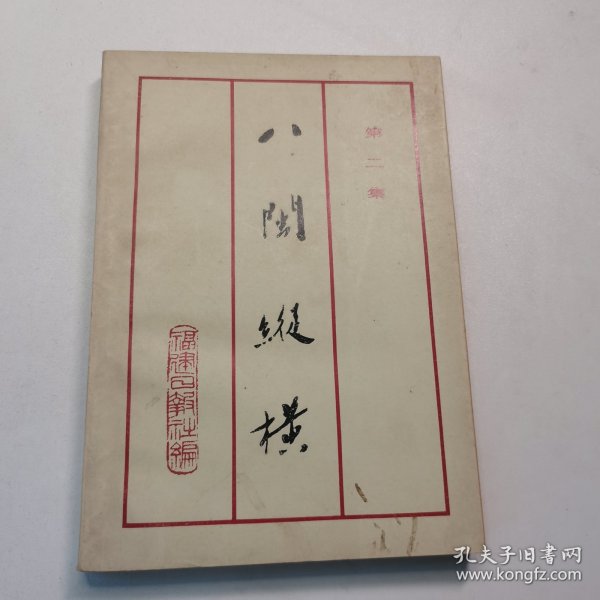 第二集
八閩縱橫
福建日報社編
孔夫子旧书网
www.kongfz.com